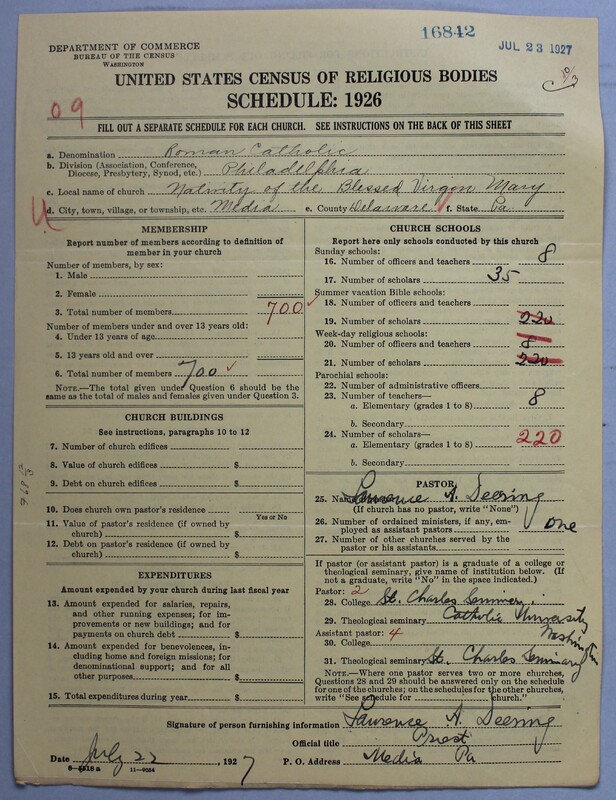 16842
JUL 23 1927
DEPARTMENT OF COMMERCE
BUREAU OF THE CENSUS
WASHINGTON
UNITED STATES CENSUS OF RELIGIOUS BODIES
SCHEDULE: 1926
09
FILL OUT A SEPARATE SCHEDULE FOR EACH CHURCH. SEE INSTRUCTIONS ON THE BACK OF THIS SHEET
a. Denomination Roman Catholic
b. Division (Association, Conference, Diocese, Presbytery, Synod, etc.) Philadelphia
c. Local name of church Nativity of the Blessed Virgin Mary
d. City, town, village, or township, etc. Media e. County Delaware f. State Pa.
MEMBERSHIP
Report number of members according to definition of
member in your church
Number of members, by sex:
1. Male
2. Female
3. Total number of members 700
Number of members under and over 13 years old:
4. Under 13 years of age
5. 13 years old and over
6. Total number of members 700
NOTE.—The total given under Question 6 should be the
same as the total of males and females given under Question 3.
CHURCH BUILDINGS
See instructions, paragraphs 10 to 12
7. Number of church edifices
8. Value of church edifices $
9. Debt on church edifices $
10. Does church own pastor's residence
Yes or No
11. Value of pastor's residence (if owned by
church) $
12. Debt on pastor's residence (if owned by
church) $
EXPENDITURES
Amount expended by your church during last fiscal year
13. Amount expended for salaries, repairs,
and other running expenses; for im-
provements or new buildings; and for
payments on church debt $
14. Amount expended for benevolences, in-
cluding home and foreign missions; for
denominational support; and for all
other purposes $
15. Total expenditures during year $
CHURCH SCHOOLS
Report here only schools conducted by this church
Sunday schools:
16. Number of officers and teachers 8
17. Number of scholars 35
Summer vacation Bible schools:
18. Number of officers and teachers
19. Number of scholars 220
Week-day religious schools:
20. Number of officers and teachers 8
21. Number of scholars 220
Parochial schools:
22. Number of administrative officers
23. Number of teachers—
a. Elementary (grades 1 to 8) 8
b. Secondary
24. Number of scholars—
a. Elementary (grades 1 to 8) 220
b. Secondary
PASTOR
25. Name Lawrence A. Deering
(If church has no pastor, write "None")
26. Number of ordained ministers, if any, em-
ployed as assistant pastors one
27. Number of other churches served by the
pastor or his assistants
If pastor (or assistant pastor) is a graduate of a college or
theological seminary, give name of institution below. (If
not a graduate, write "No" in the space indicated.)
Pastor: 2
28. College St. Charles Seminary
29. Theological seminary Catholic University
Washington
Assistant pastor: 4
30. College
31. Theological seminary St. Charles Seminary
NOTE.—Where one pastor serves two or more churches,
Questions 28 and 29 should be answered only on the schedule
for one of the churches; on the schedules for the other churches,
write "See schedule for church."
Signature of person furnishing information Lawrence A. Deering
Official title Priest
Date July 22, 1927 P. O. Address Media Pa
8—5518a 11—9084